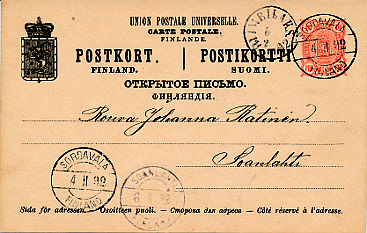 UNION POSTALE UNIVERSELLE.
CARTE POSTALE
FINLANDE.
POSTKORT. | POSTIKORTTI
FINLAND. SUOMI.
ОТКРЫТОЕ ПИСЬМО.
ФИНЛЯНДІЯ.
SORDAVALA
4 II 92
FINLAND
Rouva Johanna Ratinin
Soanlahti
SORDAVALA
4 II 92
FINLAND
SOANLAHTI
Sida för adressen. - Osoitteen puoli. - Сторона для адреса - Côté réservé à l'adresse.